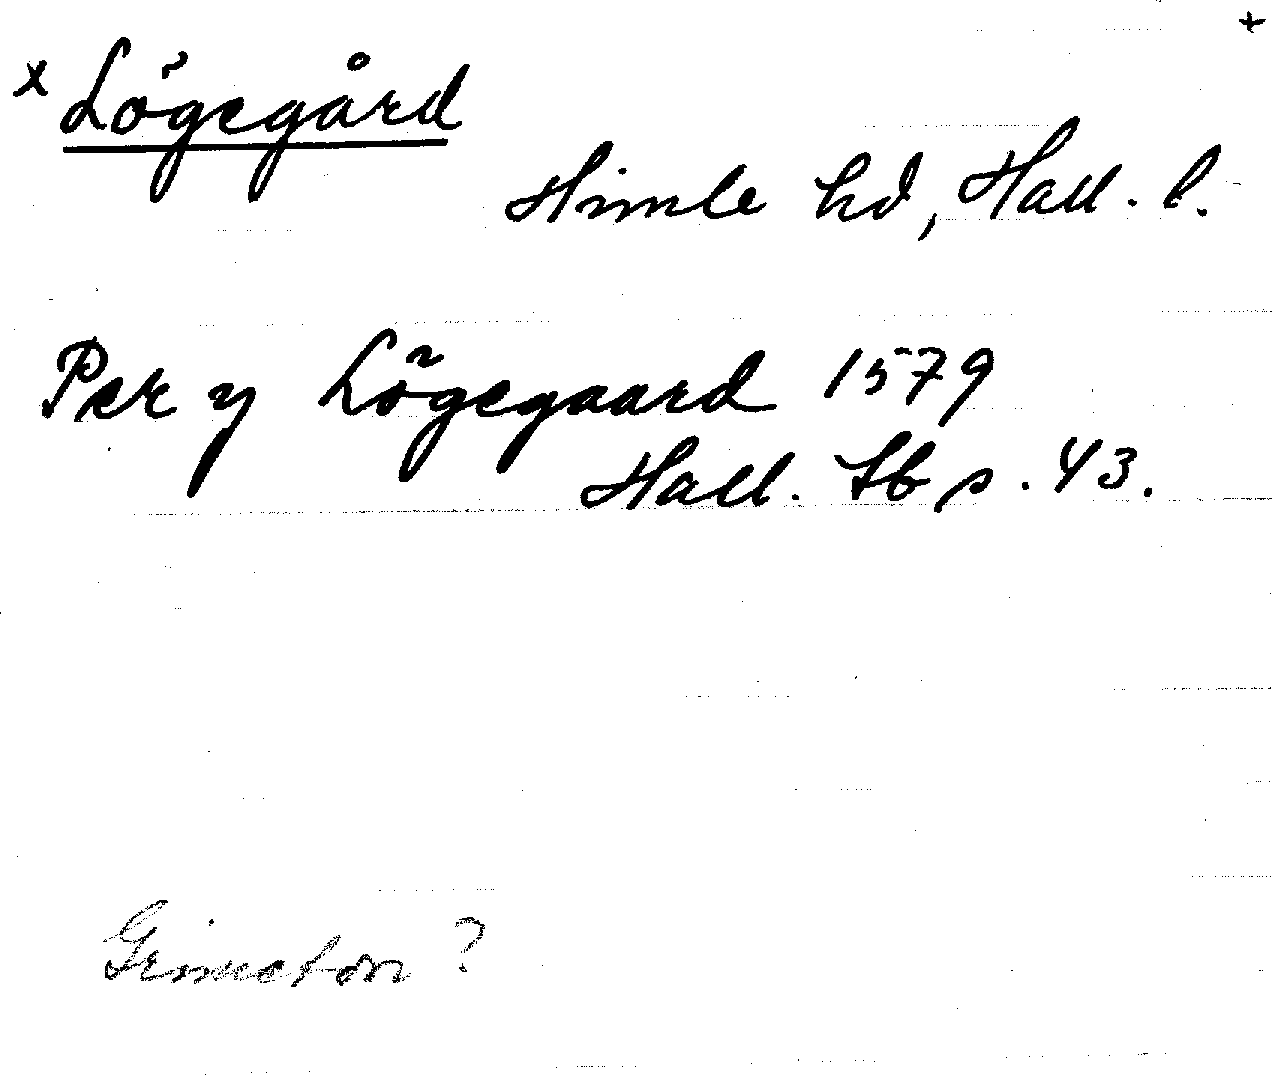 +
x Lögegård
Himle hd, Hall. l.
Per y Lögegaard 1579
Hall. Sb s. 43.
Grimeton ?